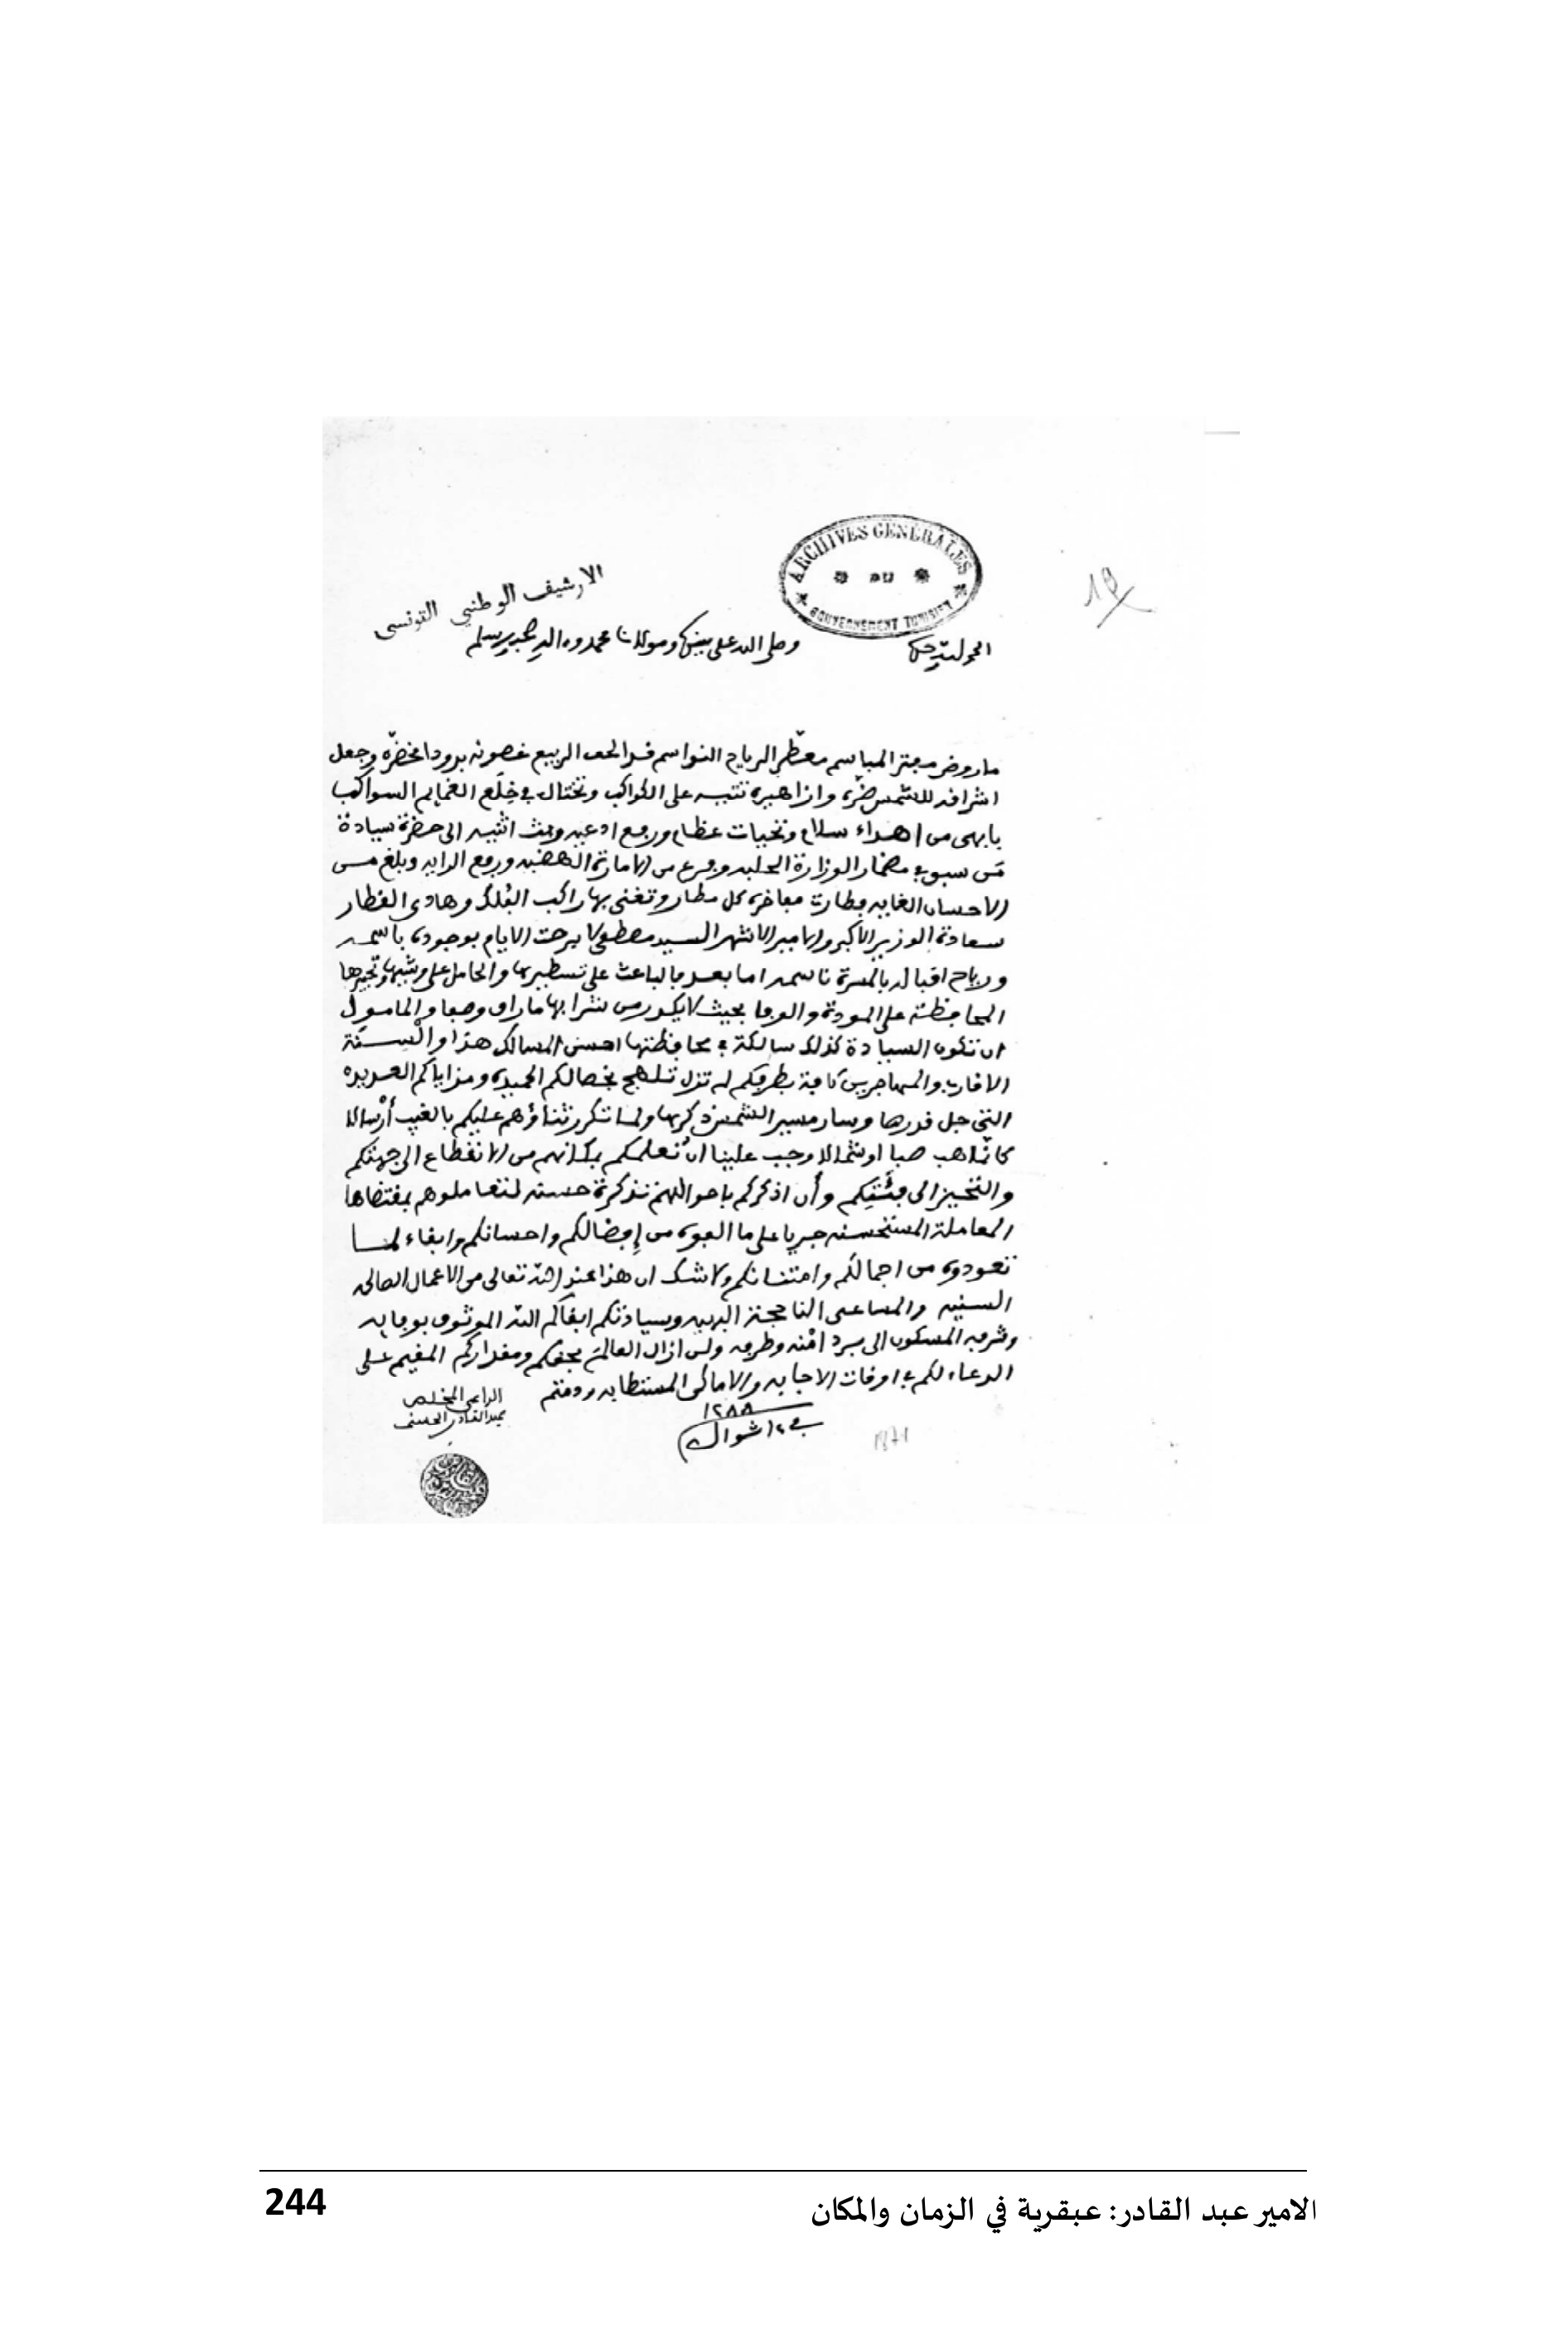 ARCHIVES GENERALES
DU
GOUVERNEMENT TUNISIEN
19
الارشيف الوطني التونسي
وصلى الله على سيدنا ومولانا محمد وءاله وصحبه وسلم
ما روض مبتز المباسم معطر الرياح النواسم الحف الربيع غصونه برودا مخضرة وجعل
اشرافه للشمس ضرة وازاهيره تتيه على الكواكب وتختال في خلع الغمايم السواكب
بابهى من اهداء سلام وتحيات عظام ورفع ادعيه وبث اثنيه الى حضرة سيادة
من سبق في مضمار الوزارة وفرع من الامارة الهضبه ورفع الرايه وبلغ من
الاحسان الغايه وطارت مفاخره كل مطار وتغنى بها راكب الفلك وهادي القطار
سعادة الوزير الاكبر والامير الاشهر السيد مصطفى لا برحت الايام بوجوده باسمه
ورياح اقباله بالمسرة ناسمه اما بعد فالباعث على تسطيرها والحامل على وشيها وتحبيرها
المحافظة على المودة والوفا بحيث لا يكدر من شرابها ما راق وصفا والمامول
ان تكون السيادة كذلك سالكة في محافظتها احسن المسالك هذا والسنة
الاقارب والمهاجرين كافة بطرفكم لم تزل تلهج بخصالكم الحميده ومزاياكم العديده
التي جل قدرها وسار مسير الشمس ذكرها ولما تكرر ثناؤهم عليكم بالغيب أرسالا
كانما هب صبا او شمالا وجب علينا ان نعلمكم بمكانهم من الانقطاع الى جهتكم
والتحيز الى فئتكم وأن اذكركم باحوالهم تذكرة حسنه لتعاملوهم بمقتضاها
المعاملة المستحسنه جريا على ما الفوه من إفضالكم واحسانكم وابقاء لما
تعودوه من اجمالكم وامتنانكم ولا شك ان هذا عند الله تعالى من الاعمال
السنيه والمساعى الناجحة وسيادتكم ابقاكم الله الموثوق بوفايه
المسكون الى برد ولن ازال العالم بحقكم ومقداركم المقيم على
الدعاء لكم في اوقات الاجابه والاماكن المستطابه ودمتم
الداعي المخلص
عبد القادر الحسني
١٢٨٨
شوال
1871
244
الامير عبد القادر: عبقرية في الزمان والمكان